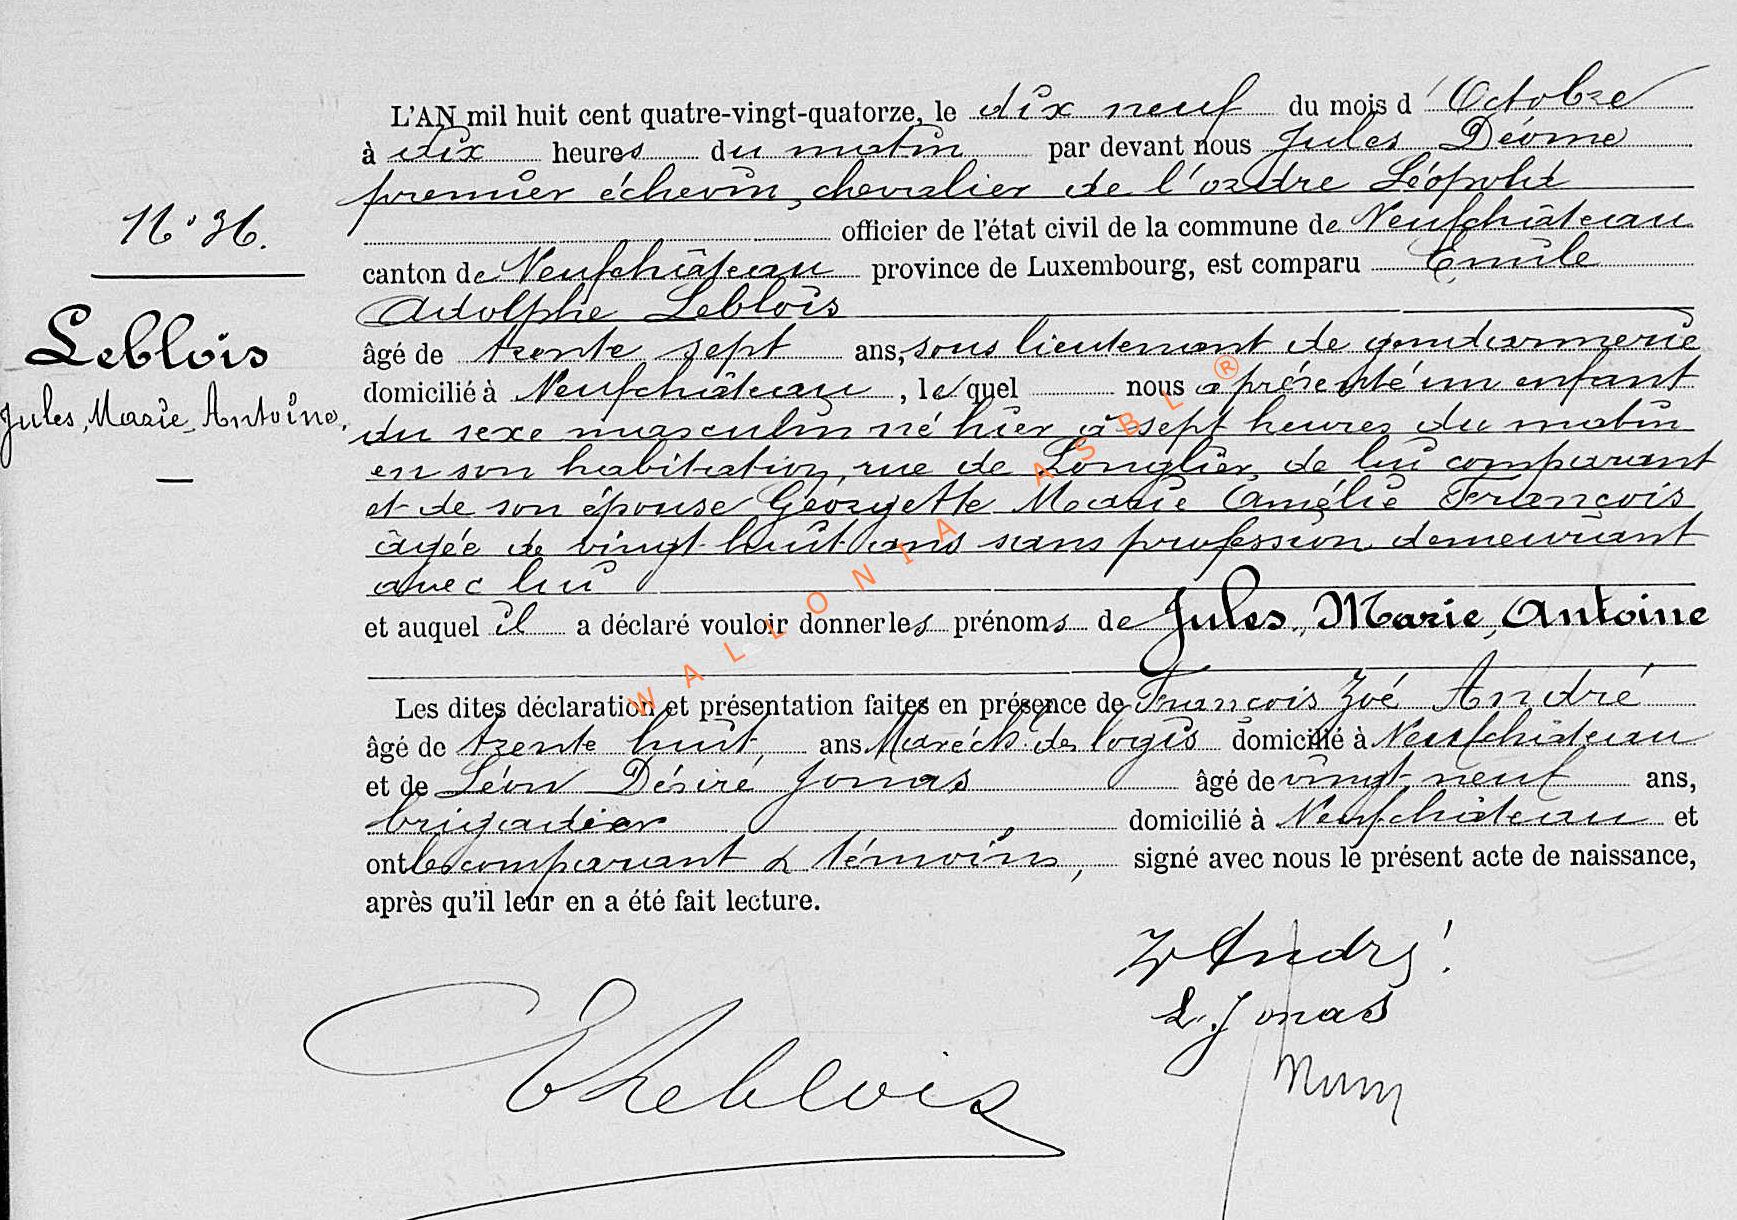 L'AN mil huit cent quatre-vingt-quatorze, le dix neuf du mois d'Octobre
à dix heures du matin par devant nous Jules Déome
premier échevin, chevalier de l'ordre Léopold
N° 36.
officier de l'état civil de la commune de Neufchâteau
canton de Neufchâteau province de Luxembourg, est comparu Emile
Adolphe Leblois
Leblois
âgé de trente sept ans, sous lieutenant de gendarmerie
domicilié à Neufchâteau, lequel nous a présenté un enfant
Jules, Marie, Antoine.
du sexe masculin né hier à sept heures du matin
en son habitation, rue de Longlier, de lui comparant
et de son épouse Géorgette Marie Camélie François
âgée de vingt-huit ans sans profession demeurant
avec lui
et auquel il a déclaré vouloir donner les prénoms de Jules, Marie, Antoine
Les dites déclaration et présentation faites en présence de François Zoé André
âgé de trente huit ans Maréch. des logis domicilié à Neufchâteau
et de Léon Désiré Jonas âgé de vingt-neuf ans,
brigadier domicilié à Neufchâteau et
ont les comparant & témoins, signé avec nous le présent acte de naissance,
après qu'il leur en a été fait lecture.
Z André
L. Jonas
E Leblois
WALLONIA ASBL ®